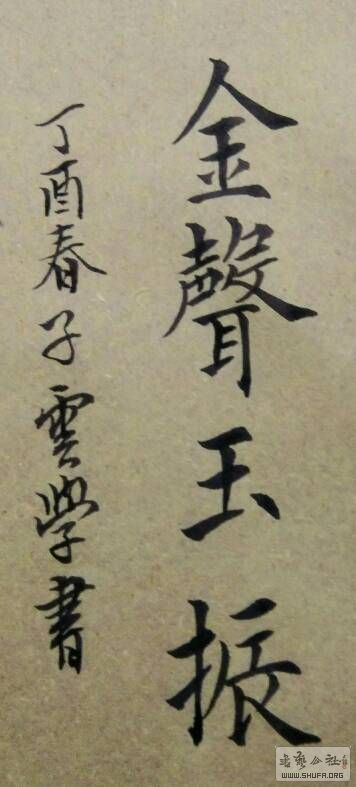 金聲玉振
丁酉春子雲學書
書藝公社
WWW.SHUFA.ORG